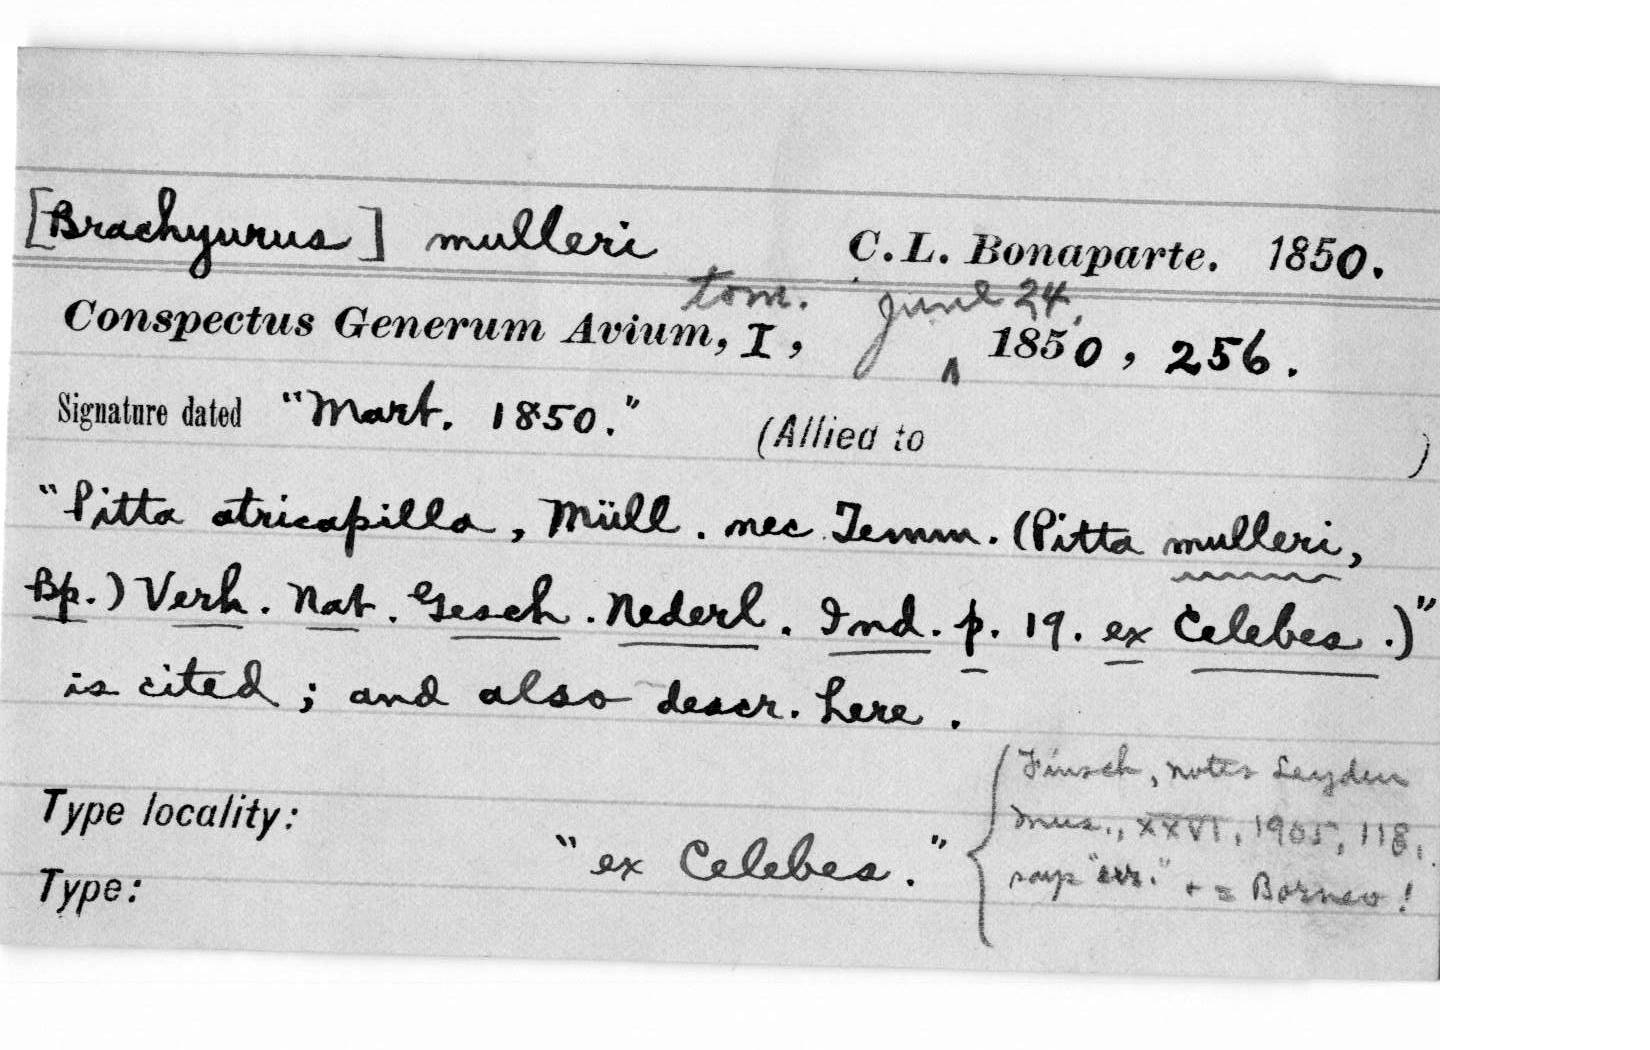 [Brachyurus] mulleri C. L. Bonaparte. 1850.
tom. June 24,
Conspectus Generum Avium, I, ‸ 1850, 256.
Signature dated "Mart. 1850." (Allied to )
"Pitta atricapilla, Müll. nec Temm. (Pitta mulleri,
Bp.) Verh. Nat. Gesch. Nederl. Ind. p. 19. ex Celebes.)"
is cited; and also descr. here.
Finsch, Notes Leyden
Type locality: Mus., XXVI, 1905, 118,
"ex Celebes." says "err." + = Borneo!
Type: